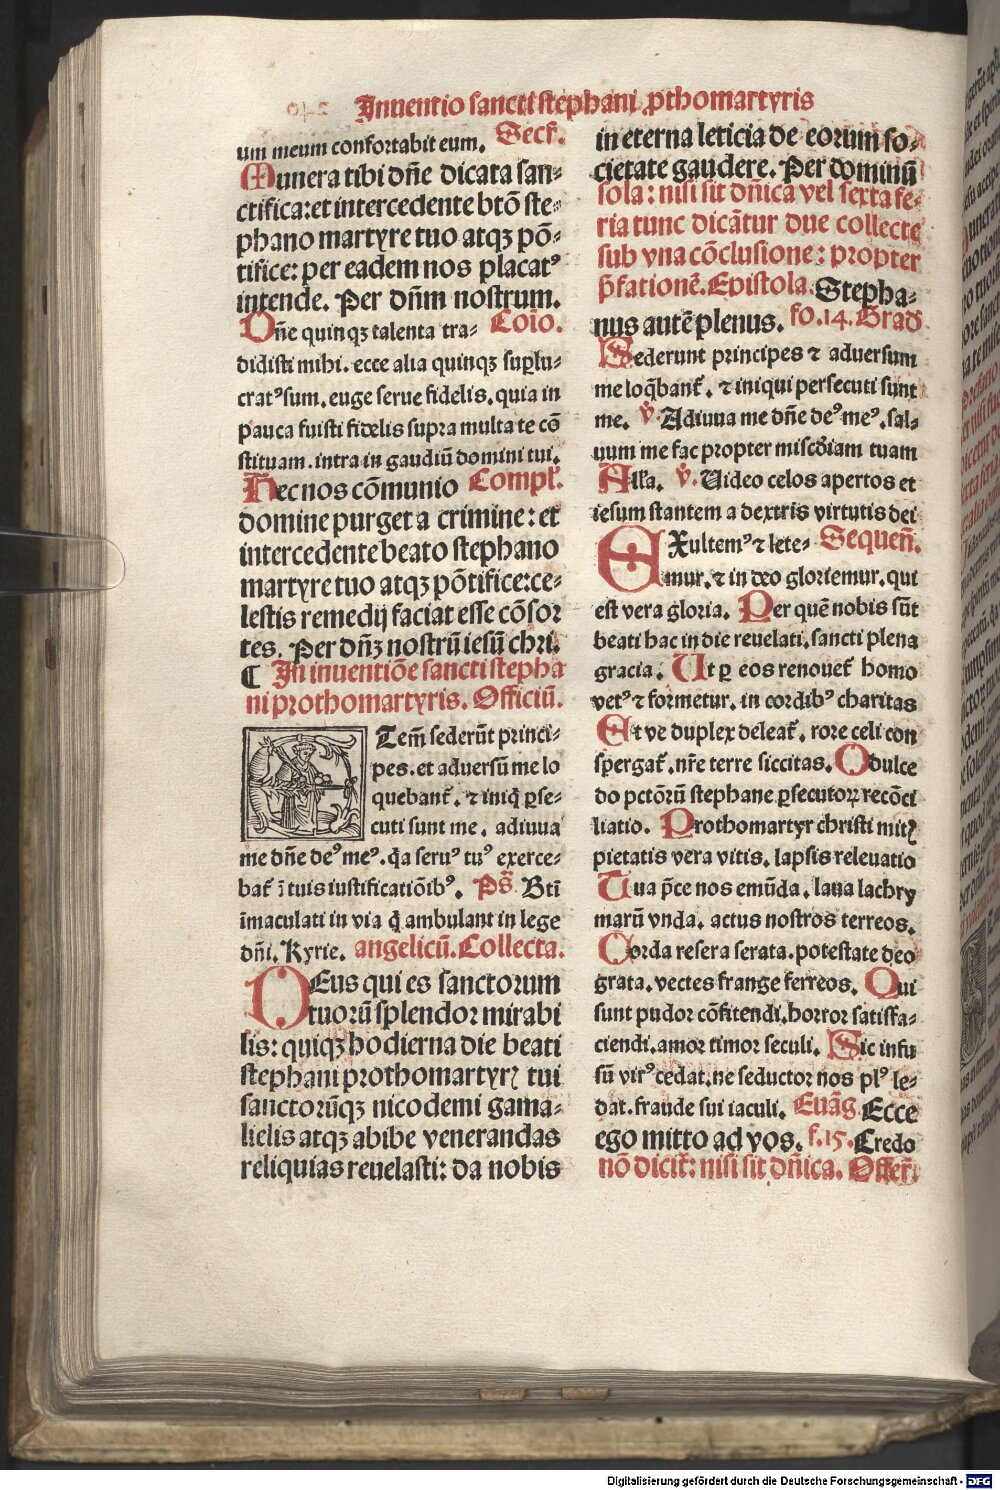 Inuentio sancti stephani ꝓthomartyris
um meum confortabit eum. Secr̃.
Munera tibi dñe dicata san⸗
ctifica: et intercedente btõ ste⸗
phano martyre tuo atqꝫ põ⸗
tifice: per eadem nos placatꝰ
intende. Per dñm nostrum.
Dñe quinqꝫ talenta tra⸗ Cõio.
didisti mihi. ecce alia quinqꝫ suꝑlu⸗
cratꝰ sum. euge serue fidelis. quia in
pauca fuisti fidelis supra multa te cõ
stituam. intra in gaudiũ domini tui.
Hec nos cõmunio Compl̃.
domine purget a crimine: et
intercedente beato stephano
martyre tuo atqꝫ põtifice: ce⸗
lestis remedij faciat esse cõsor
tes. Per dñꝫ nostrũ iesũ chri.
¶ In inuentiõe sancti stepha
ni prothomartyris. Officiũ.
ETem̃ sederũt princi⸗
pes. et aduersũ me lo
quebant̃. ⁊ iniq̇ ꝑse⸗
cuti sunt me. adiuua
me dñe deꝰ meꝰ. q̇a seruꝰ tuꝰ exerce⸗
bat̃ ĩ tuis iustificatiõibꝰ. Ps̃. Bti
ĩmaculati in via q̇ ambulant in lege
dñi. Kyrie. angelicũ. Collecta.
DEus qui es sanctorum
tuorũ splendor mirabi
lis: quiqꝫ hodierna die beati
stephani prothomartyrꝭ tui
sanctorũqꝫ nicodemi gama⸗
lielis atqꝫ abibe venerandas
reliquias reuelasti: da nobis
in eterna leticia de eorum so⸗
cietate gaudere. Per dominũ
sola: nisi sit dñica vel sexta fe⸗
ria tunc dicãtur due collecte
sub vna cõclusione: propter
p̃fationẽ. Epistola. Stepha⸗
nus autẽ plenus. fo. 14. Grad̃
Sederunt principes ⁊ aduersum
me loq̃bant̃. ⁊ iniqui persecuti sunt
me. v̇. Adiuua me dñe deꝰ meꝰ. sal⸗
uum me fac propter miscðiam tuam
All'a. v̇. Uideo celos apertos et
iesum stantem a dextris virtutis dei
EXultemꝰ ⁊ lete⸗ Sequeñ.
mur. ⁊ in deo gloriemur. qui
est vera gloria. Per quẽ nobis sũt
beati hac in die reuelati. sancti plena
gracia. Ut ꝑ eos renouet̃ homo
vetꝰ ⁊ formetur. in cordibꝰ charitas
Et ve duplex deleat̃. rore celi con
spergat̃. nr̃e terre siccitas. O dulce
do pctõrũ stephane ꝑsecutoꝝ recõci
liatio. Prothomartyr christi mitꝭ
pietatis vera vitis. lapsis releuatio
Tua p̃ce nos emũda. laua lachry
marũ vnda. actus nostros terreos.
Corda resera serata. potestate deo
grata. vectes frange ferreos. Qui
sunt pudor cõfitendi. horror satisfa⸗
ciendi. amor timor seculi. Sic infu
sũ virꝰ cedat. ne seductor nos plꝰ le⸗
dat. fraude sui iaculi. Euãg. Ecce
ego mitto ad vos. f. 15. Credo
nõ dicit̃: nisi sit dñica. Offer̃.
Digitalisierung gefördert durch die Deutsche Forschungsgemeinschaft - DFG